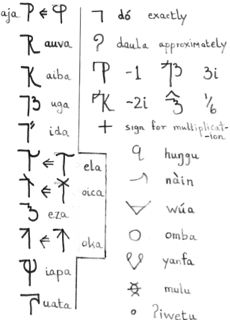 aja
auva
aiba
uga
ida
ela
oica
eza
oka
iapa
uata
dó exactly
daula approximately
-1 3i
-2i 1/6
+ sign for multiplicat-
-ion
huŋgu
nàin
wúa
omba
yanfa
mulu
ʔiwetu